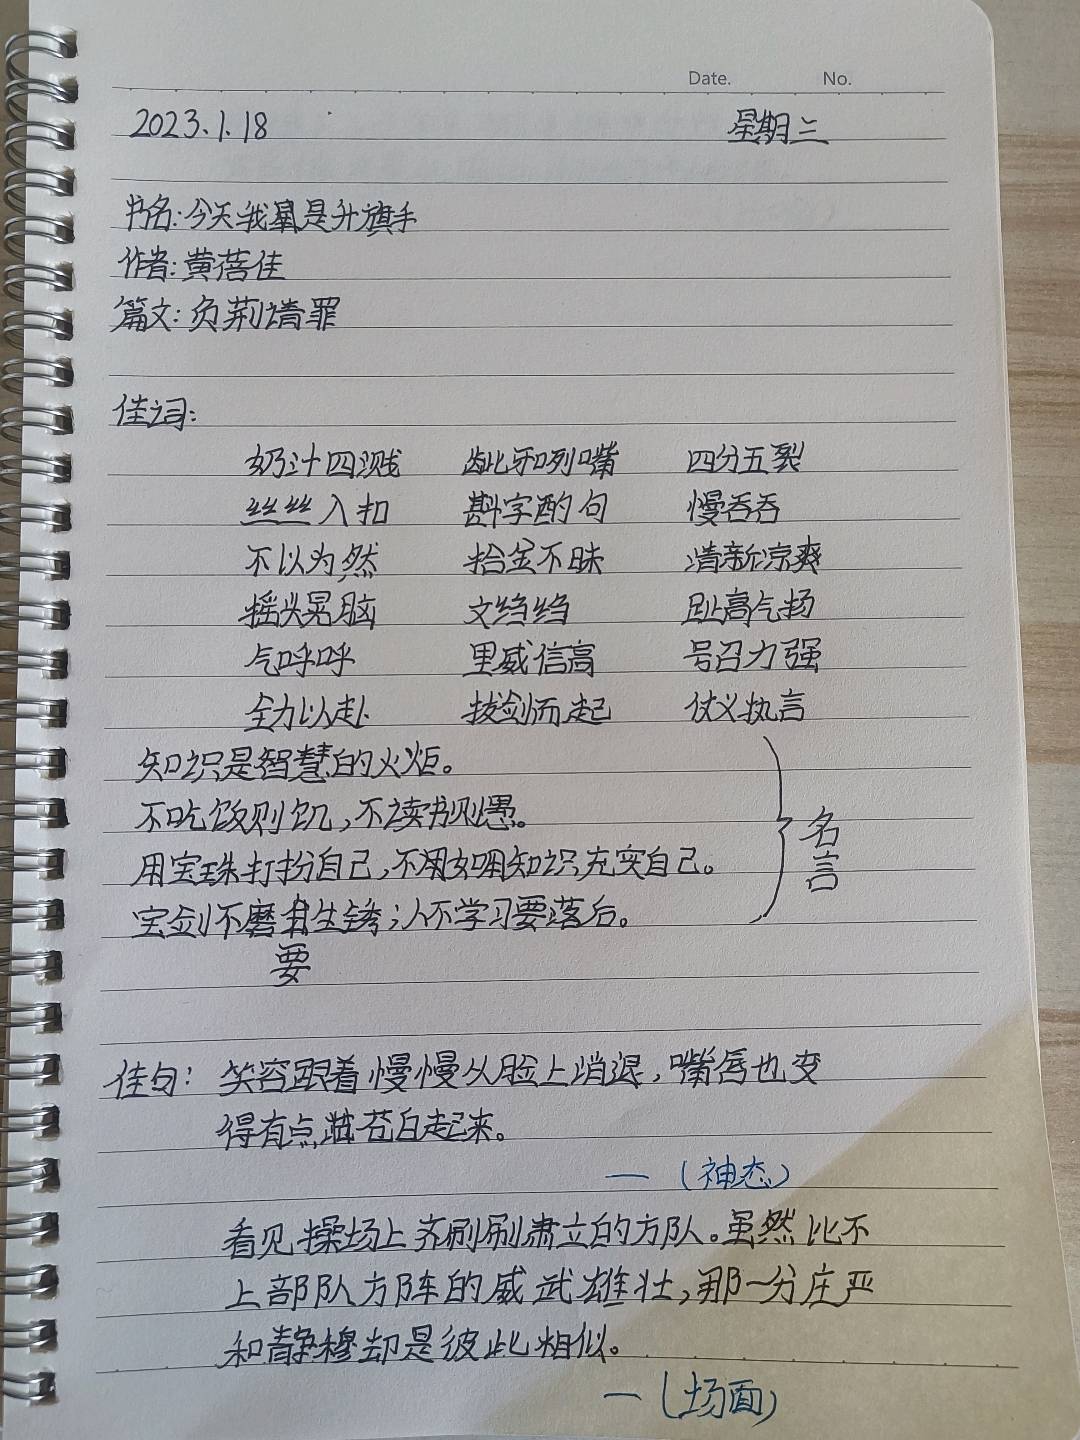 Date. No.
2023.1.18 星期三
书名:今天我是升旗手
作者:黄蓓佳
篇文:负荆请罪
佳词:
奶汁四溅 龇牙咧嘴 四分五裂
丝丝入扣 斟字酌句 慢吞吞
不以为然 拾金不昧 清新凉爽
摇头晃脑 文绉绉 趾高气扬
气呼呼 里威信高 号召力强
全力以赴 拔剑而起 仗义执言
知识是智慧的火炬。
不吃饭则饥,不读书则愚。
用宝珠打扮自己,不如用知识充实自己。
宝剑不磨要生锈;人不学习要落后。
名言
佳句:笑容跟着慢慢从脸上消退,嘴唇也变
得有点苍白起来。
—(神态)
看见操场上齐刷刷肃立的方队。虽然比不
上部队方阵的威武雄壮,那一分庄严
和静穆却是彼此相似。
—(场面)